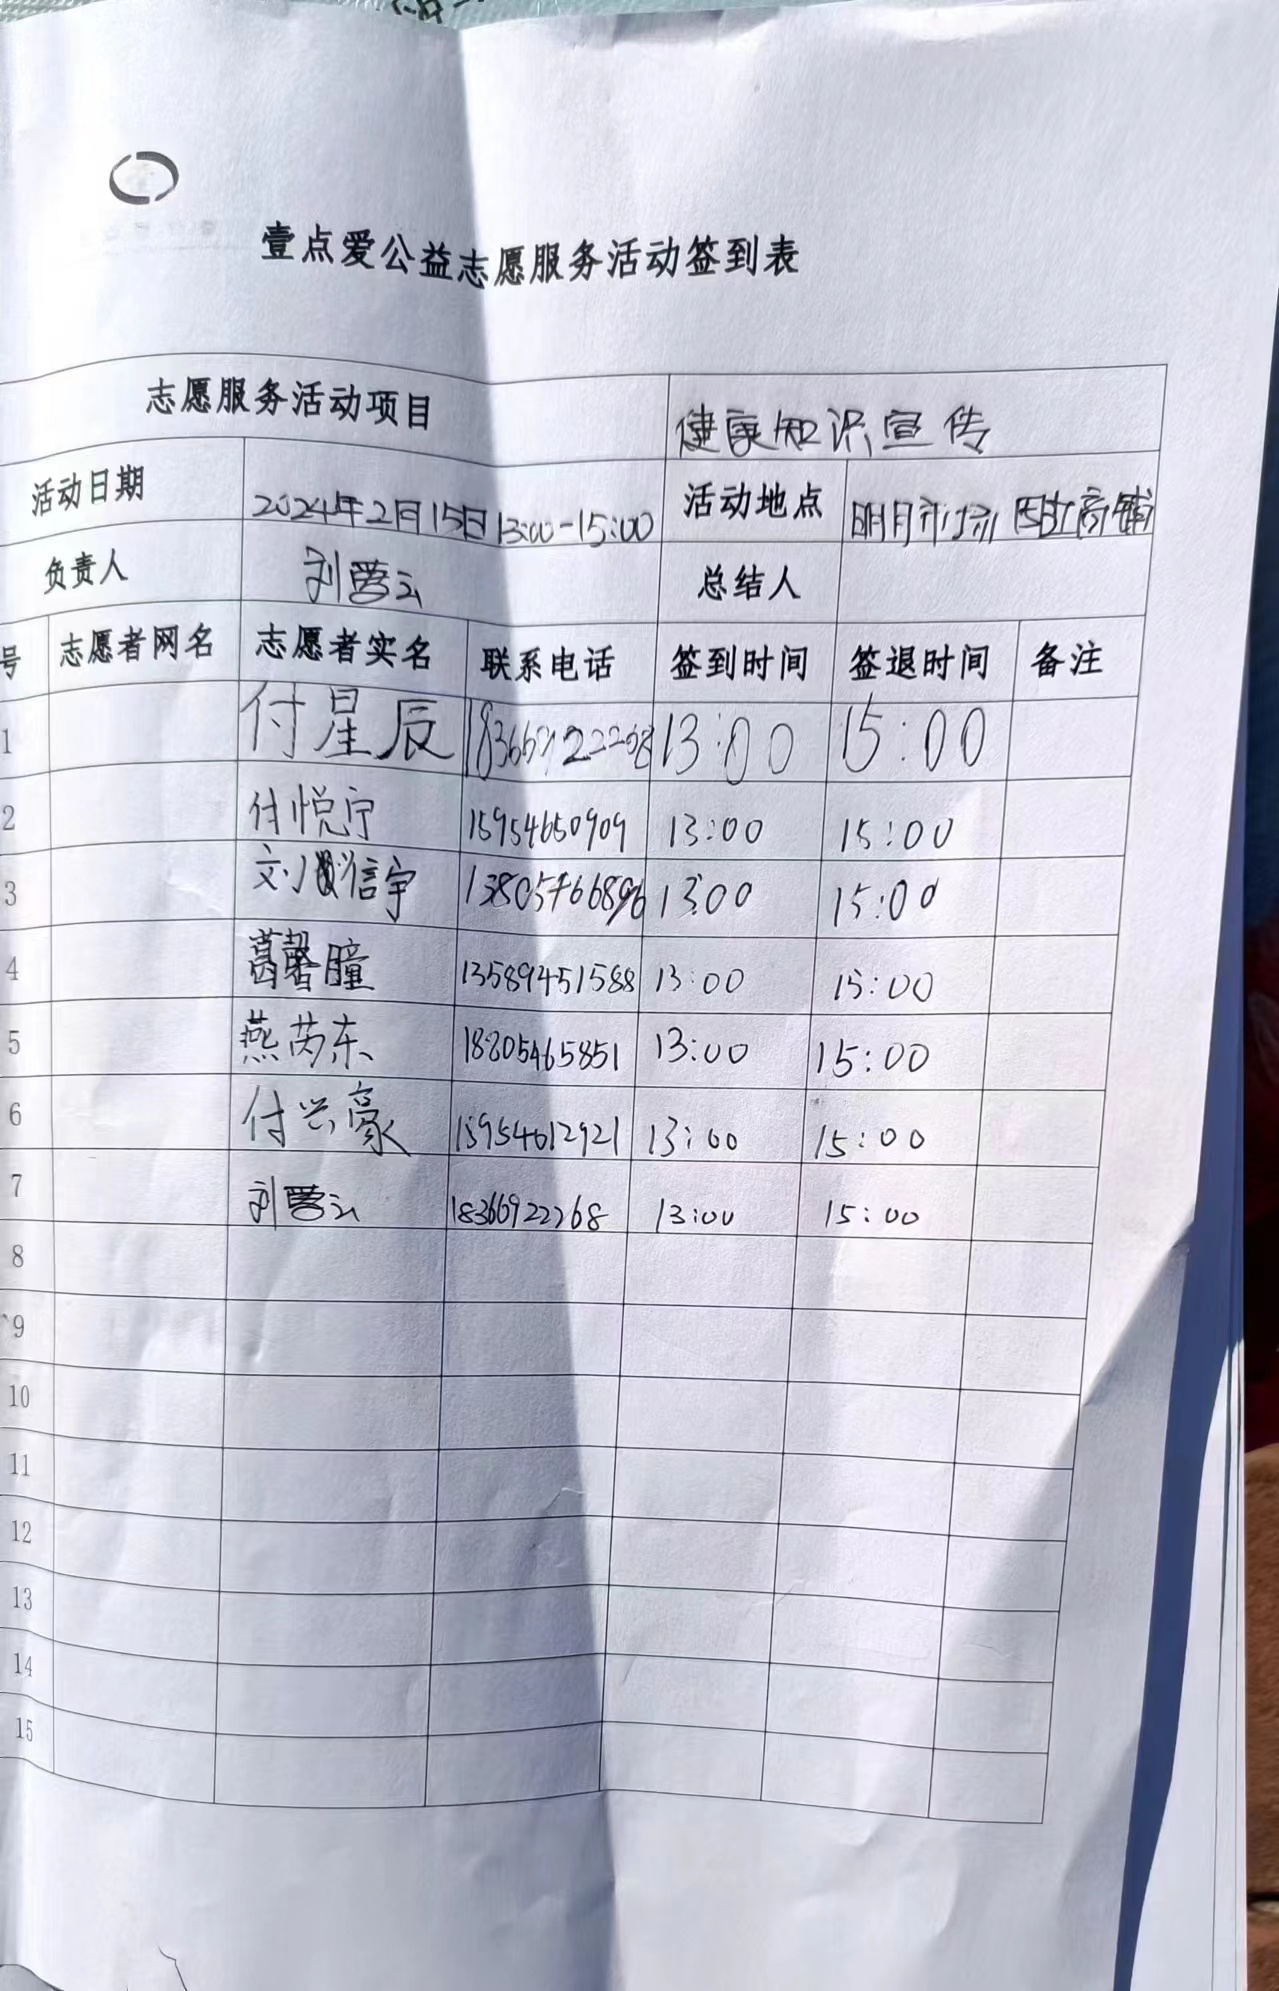 壹点爱公益志愿服务活动签到表
志愿服务活动项目 健康知识宣传
活动日期 2024年2月15日13:00-15:00 活动地点 明月市场 商铺
负责人 刘蓉云 总结人
号 志愿者网名 志愿者实名 联系电话 签到时间 签退时间 备注
1 付星辰 13:00 15:00
2 付悦宁 15954650909 13:00 15:00
3 刘信宇 13:00 15:00
4 葛馨瞳 13589451588 13:00 15:00
5 燕芮东 18805465851 13:00 15:00
6 付兴豪 15954612921 13:00 15:00
7 刘蓉云 18366922268 13:00 15:00
8
9
10
11
12
13
14
15